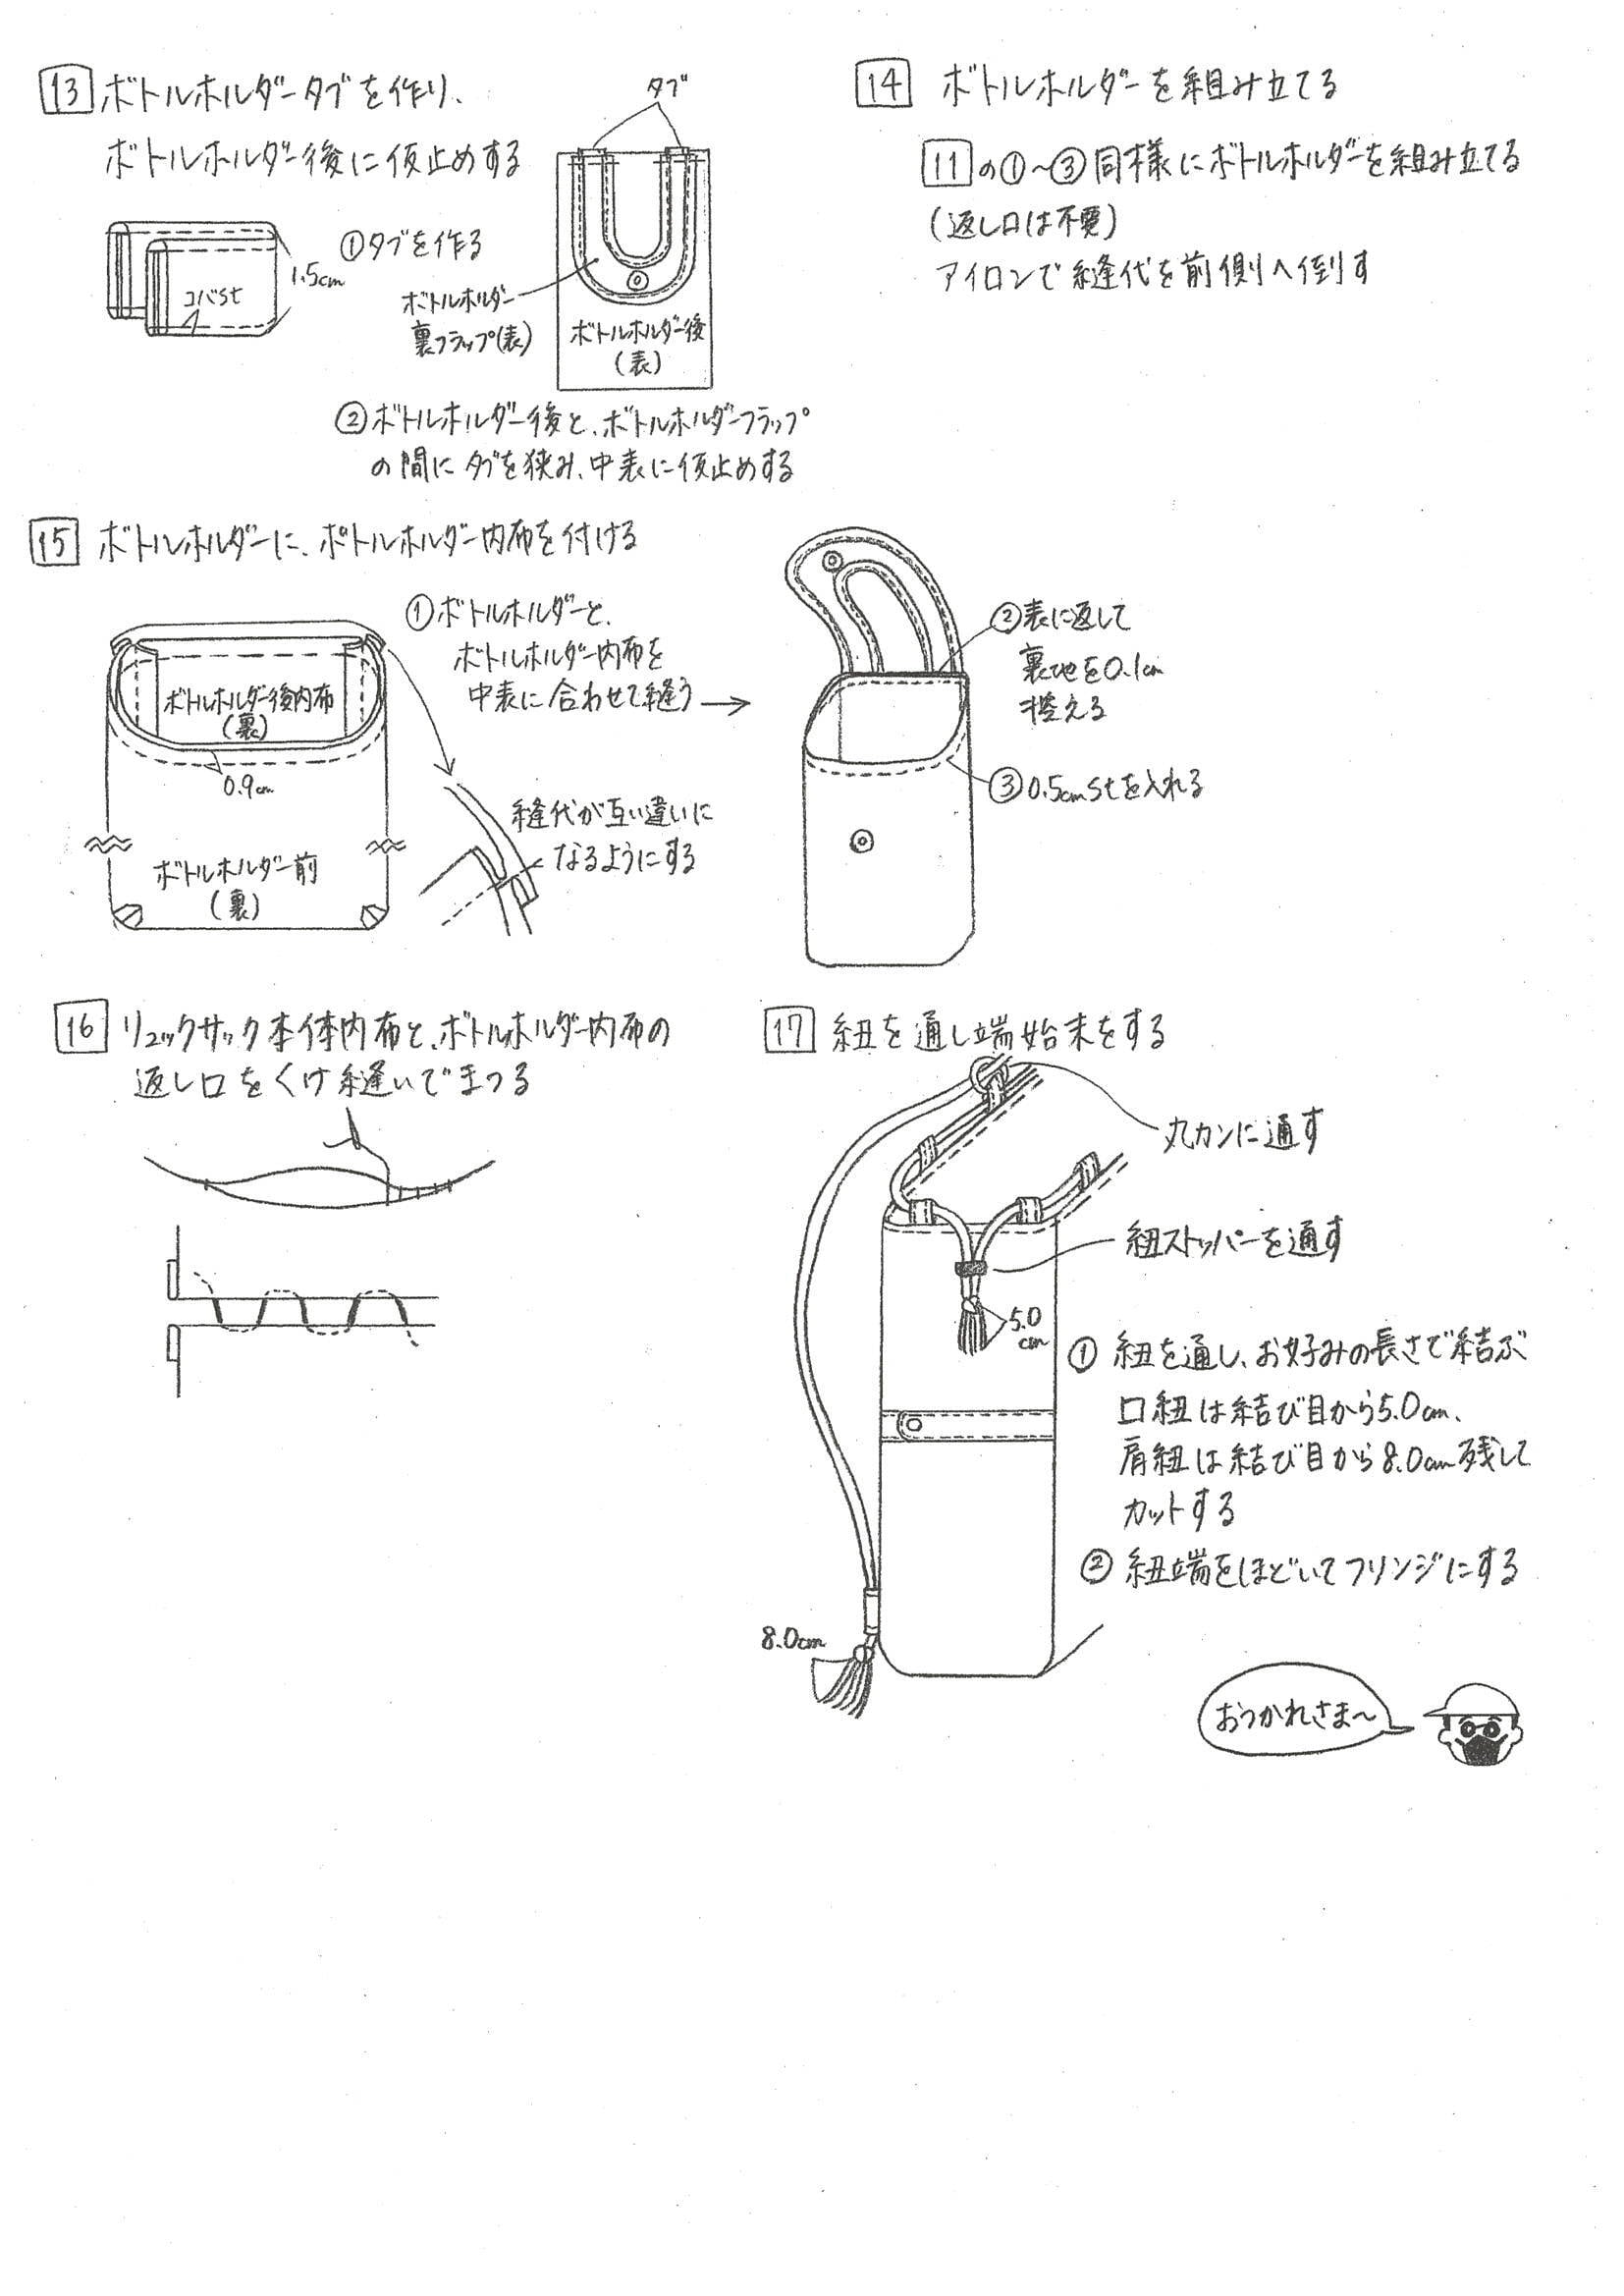 13 ボトルホルダータブを作り、
ボトルホルダー後に仮止めする
タブ
①タブを作る
1.5cm
コバSt
ボトルホルダー
裏フラップ(表)
ボトルホルダー後
(表)
②ボトルホルダー後と、ボトルホルダーフラップ
の間にタブを挟み、中表に仮止めする
14 ボトルホルダーを組み立てる
11の①〜③同様にボトルホルダーを組み立てる
(返し口は不要)
アイロンで縫代を前側へ倒す
15 ボトルホルダーに、ボトルホルダー内布を付ける
①ボトルホルダーと、
ボトルホルダー内布を
中表に合わせて縫う
ボトルホルダー後内布
(裏)
0.9cm
ボトルホルダー前
(裏)
縫代が互い違いに
なるようにする
②表に返して
裏地を0.1cm
控える
③0.5cmStを入れる
16 リュックサック本体内布と、ボトルホルダー内布の
返し口をくけ縫いでまつる
17 紐を通し端始末をする
丸カンに通す
紐ストッパーを通す
5.0
cm
① 紐を通し、お好みの長さで結ぶ
口紐は結び目から5.0cm、
肩紐は結び目から8.0cm残して
カットする
② 紐端をほどいてフリンジにする
8.0cm
おつかれさま〜